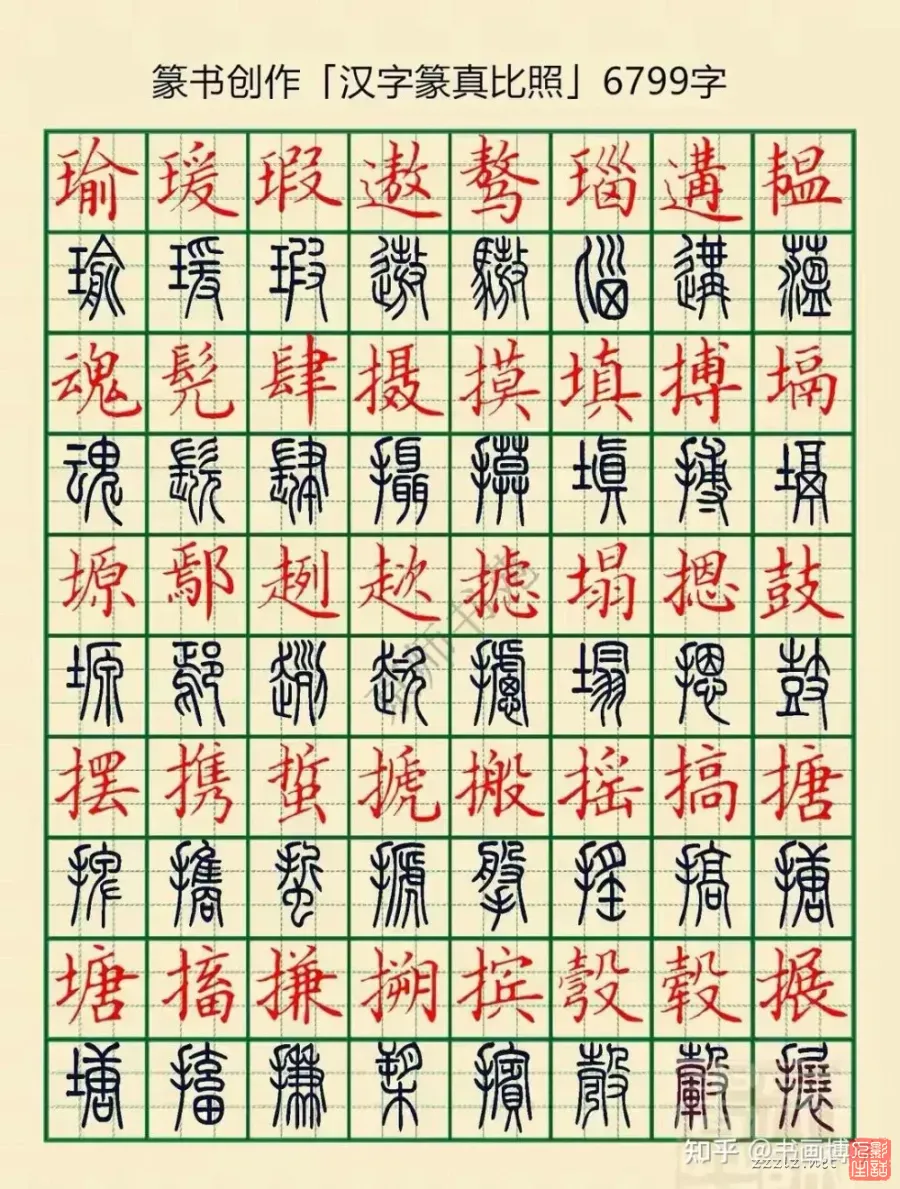 篆书创作「汉字篆真比照」6799字
瑜 瑗 瑕 遨 骜 瑙 遘 韫
瑜 瑗 瑕 遨 驁 遘 薀
魂 髡 肆 摄 摸 填 搏 塥
魂 髡 肆 攝 摸 填 搏
塬 鄢 趔 趑 摅 塌 摁 鼓
鄢 趔 趑 攄 塌 摁 鼓
摆 携 蜇 搋 搬 摇 搞 搪
攜 蜇 搋 搖 搞 搪
塘 搐 搛 搠 摈 彀 毂 搌
塘 搛 擯 彀 轂
知乎 @书画博
zzzlz.net